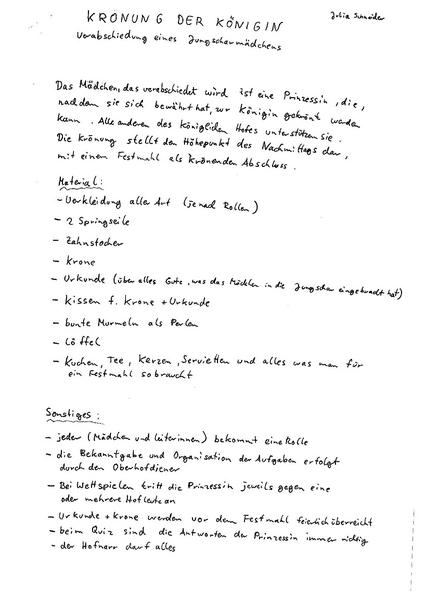 KRÖNUNG DER KÖNIGIN
Julia Schneider
Verabschiedung eines Jungscharmädchens
Das Mädchen, das verabschiedet wird ist eine Prinzessin, die,
nachdem sie sich bewährt hat, zur Königin gekrönt werden
kann. Alle anderen des königlichen Hofes unterstützen sie.
Die Krönung stellt den Höhepunkt des Nachmittags dar,
mit einem Festmahl als krönenden Abschluss.
Material:
- Verkleidung aller Art (je nach Rollen)
- 2 Springseile
- Zahnstocher
- Krone
- Urkunde (über alles Gute, was das Mädchen in die Jungschar eingebracht hat)
- Kissen f. Krone + Urkunde
- bunte Murmeln als Perlen
- Löffel
- Kuchen, Tee, Kerzen, Servietten und alles was man für
ein Festmahl so braucht
Sonstiges:
- jeder (Mädchen und Leiterinnen) bekommt eine Rolle
- die Bekanntgabe und Organisation der Aufgaben erfolgt
durch den Oberhofdiener
- Bei Wettspielen tritt die Prinzessin jeweils gegen eine
oder mehrere Hofleute an
- Urkunde + Krone werden vor dem Festmahl feierlich überreicht
- beim Quiz sind die Antworten der Prinzessin immer richtig
- der Hofnarr darf alles